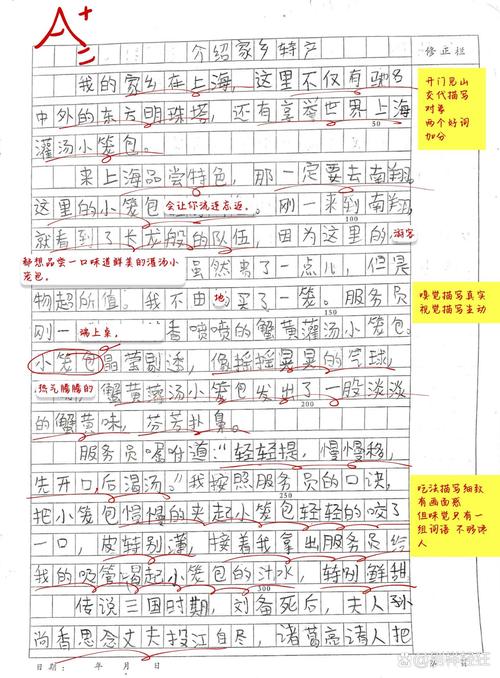 A+
介绍家乡特产
修正栏
我的家乡在上海，这里不仅有驰名
中外的东方明珠塔，还有享举世界上海
50
灌汤小笼包。
开门见山
交代描写
对象
两个好词
加分
来上海品尝特色，那一定要去南翔，
这里的小笼包会让你流连忘返。刚一来到南翔，
就看到了长龙般的队伍，因为这里的游客
都想品尝一口味道鲜美的灌汤小
笼包。
虽然贵了一点儿，但是
物超所值。我不由地买了一笼。服务员
150
刚一端上桌，香喷喷的蟹黄灌汤小笼包。
嗅觉描写真实
视觉描写生动
小笼包晶莹剔透，像摇摇晃晃的气球，
热气腾腾的，蟹黄灌汤小笼包发出了一股淡淡
200
的蟹黄味，芬芳扑鼻。
服务员嘱咐道：“轻轻提，慢慢移，
先开口，后喝汤。”我按照服务员的口诀，
250
把小笼包慢慢的夹起小笼包轻轻的咬了
一口，皮特别薄，接着我拿出服务员给
我的吸管喝起小笼包的汁水，特别鲜甜
300
吃法描写细致
有画面感
但味觉只有一
组词语 不够诱
人
传说三国时期，刘备死后，夫人孙
尚香思念丈夫投江自尽，诸葛亮诸人把
日期： 年 月 日